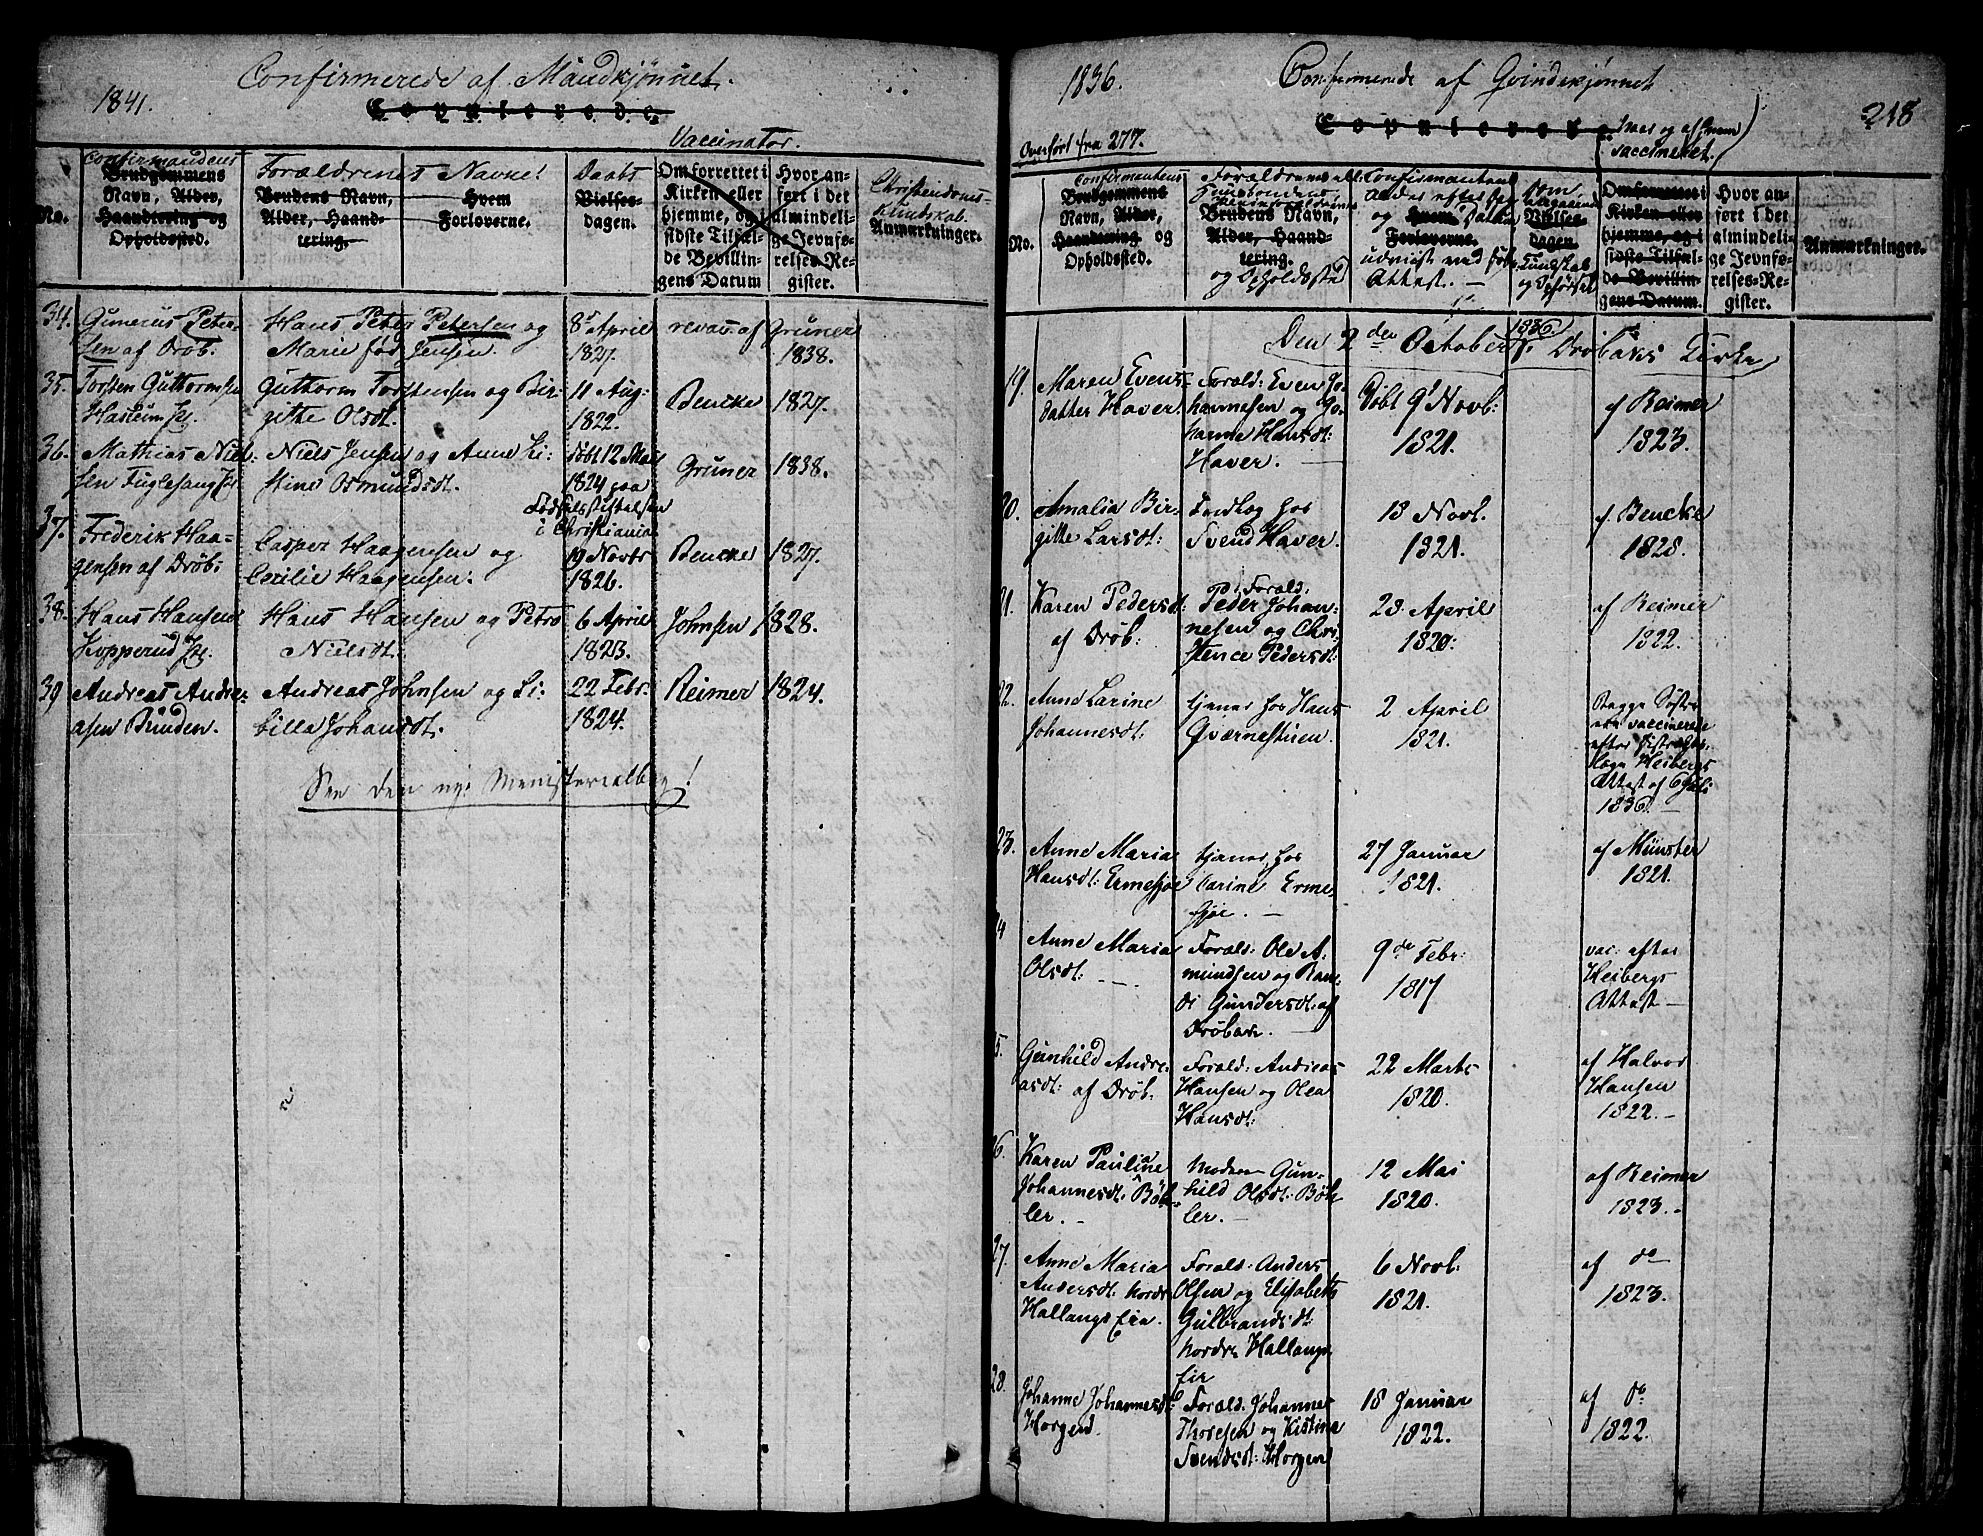 1841.
Confirmerede af Mandkjønnet.
Copulerede.
Vaccinator.
Confirmandens
Forældrenes Navne
Daabs
Christendoms-
Kundskab.
No.
Brudgommens
Navn, Alder,
Haandtering og
Opholdssted.
Brudens Navn,
Alder, Haand-
tering.
Hvem
Forloverne.
Vielses-
dagen.
Om forrettet i
Kirken eller
hjemme, og i
sidste Tilfæl-
de Bevillin-
gens Datum
Hvor an-
ført i det
almindeli-
ge Jevnfø-
relses-Re-
gister.
Anmærkninger.
34. Gunerius Peter-
sen af Drøb:
Hans Peter Petersen og
Marie fød Jensen.
8 April
1827.
revac. af Gruner
1838.
35. Torsten Guttormsen
Haslum
Guttorm Torstensen og Bir-
gitte Olsdt.
11 Aug:
1822.
Bencke 1827.
36. Mathias Niel-
sen Fuglesang
Niels Jensen og Anne Li-
stine Osmundsdt.
døbt 12 Mai
1824 paa
Fødselsstiftelsen
i Christiania
Gruner 1838.
37. Frederik Haa-
gensen af Drøb:
Casper Haagensen og
Cecilie Haagensen:
19 Novbr
1826.
Bencke 1827.
38. Hans Hansen
Kopperud
Hans Hansen og Petro
Nielsdt.
6 April
1825.
Johnsen 1828.
39 Andreas Andre-
asen Bunden.
Andreas Johnsen og Si-
billa Johansdt.
22 Febr.
1824.
Reimer 1824.
See den nye Ministerialbog!
1836.
Confirmerede af Qvindekjønnet
218
Copulerede
Overført fra 217.
vaccineret.
Confirmantens
No.
Brudgommens
Navn, Alder,
Haandtering og
Opholdssted.
Brudens Navn,
Alder, Haand-
tering.
og Opholdsted
Confirmantens
Alder efter
og Hvem
Forloverne.
udviist ved
Attest.
Vielses-
dagen.
Kundskab
Om forrettet i
Kirken eller
hjemme, og i
sidste Tilfæl-
de Bevillin-
gens Datum.
Hvor an-
ført i det
almindeli-
ge Jevnfø-
relses-Re-
gister.
Anmærkninger.
Den 2den October 1836 i Drøbaks Kirke
19. Maren Evens-
datter Haver.
Foræld: Even Jo-
hannesen og Jo-
hanne Hansdt:
Haver.
Døbt 9 Novb:
1821.
af Reimer
1823.
20. Amalia Bir-
gitte Larsdt:
Fredlog hos
Svend Haver.
13 Novb.
1821.
af Bencke
1828.
21. Karen Pedersdt:
af Drøb:
Foræld:
Peder Johan-
nesen og Chri-
stence Pedersdt:
23 April
1820:
af Reimer
1822.
22. Anne Larine
Johannesdt:
tjener hos Hans
Qværnestuen.
2 April
1821.
vaccinerede
efter Districts-
læge Heibergs
Attest af 6 Juli
1836.
23. Anne Maria
Hansdt: Ermesjøe
tjener hos
Carine Erme-
sjøe.
27 Januar
1821.
af Münster
1821.
24 Anne Maria
Olsdt:
Foræld: Ole A-
mundsen og Ran-
di Gundersdt: af
Drøbak.
9de Febr:
1817
vac: efter
Heibergs
Attest
25. Gunhild Andre-
asdt: af Drøb.
Foræld: Andreas
Hansen og Olea
Hansdt:
22 Marts
1820.
af Halvor
Hansen
1822.
26. Karen Pauline
Johannesdt: Bøh-
ler.
Moderen Gun-
hild Olsdt: Bøh-
ler.
12 Mai
1820.
af Reimer
1823.
27. Anne Maria
Andersdt: Nordre
Hallangs Eie.
Foræld: Anders
Olsen og Elisabeth
Gulbrandsdt:
Nordre Hallangs-
eie
6 Novb:
1821.
af do
1823.
28. Johanne Johannesdt:
Horgen.
Foræld. Johannes
Thoresen og Kistina
Svendsdt: Horgen
18 Januar
1822.
af do
1822.